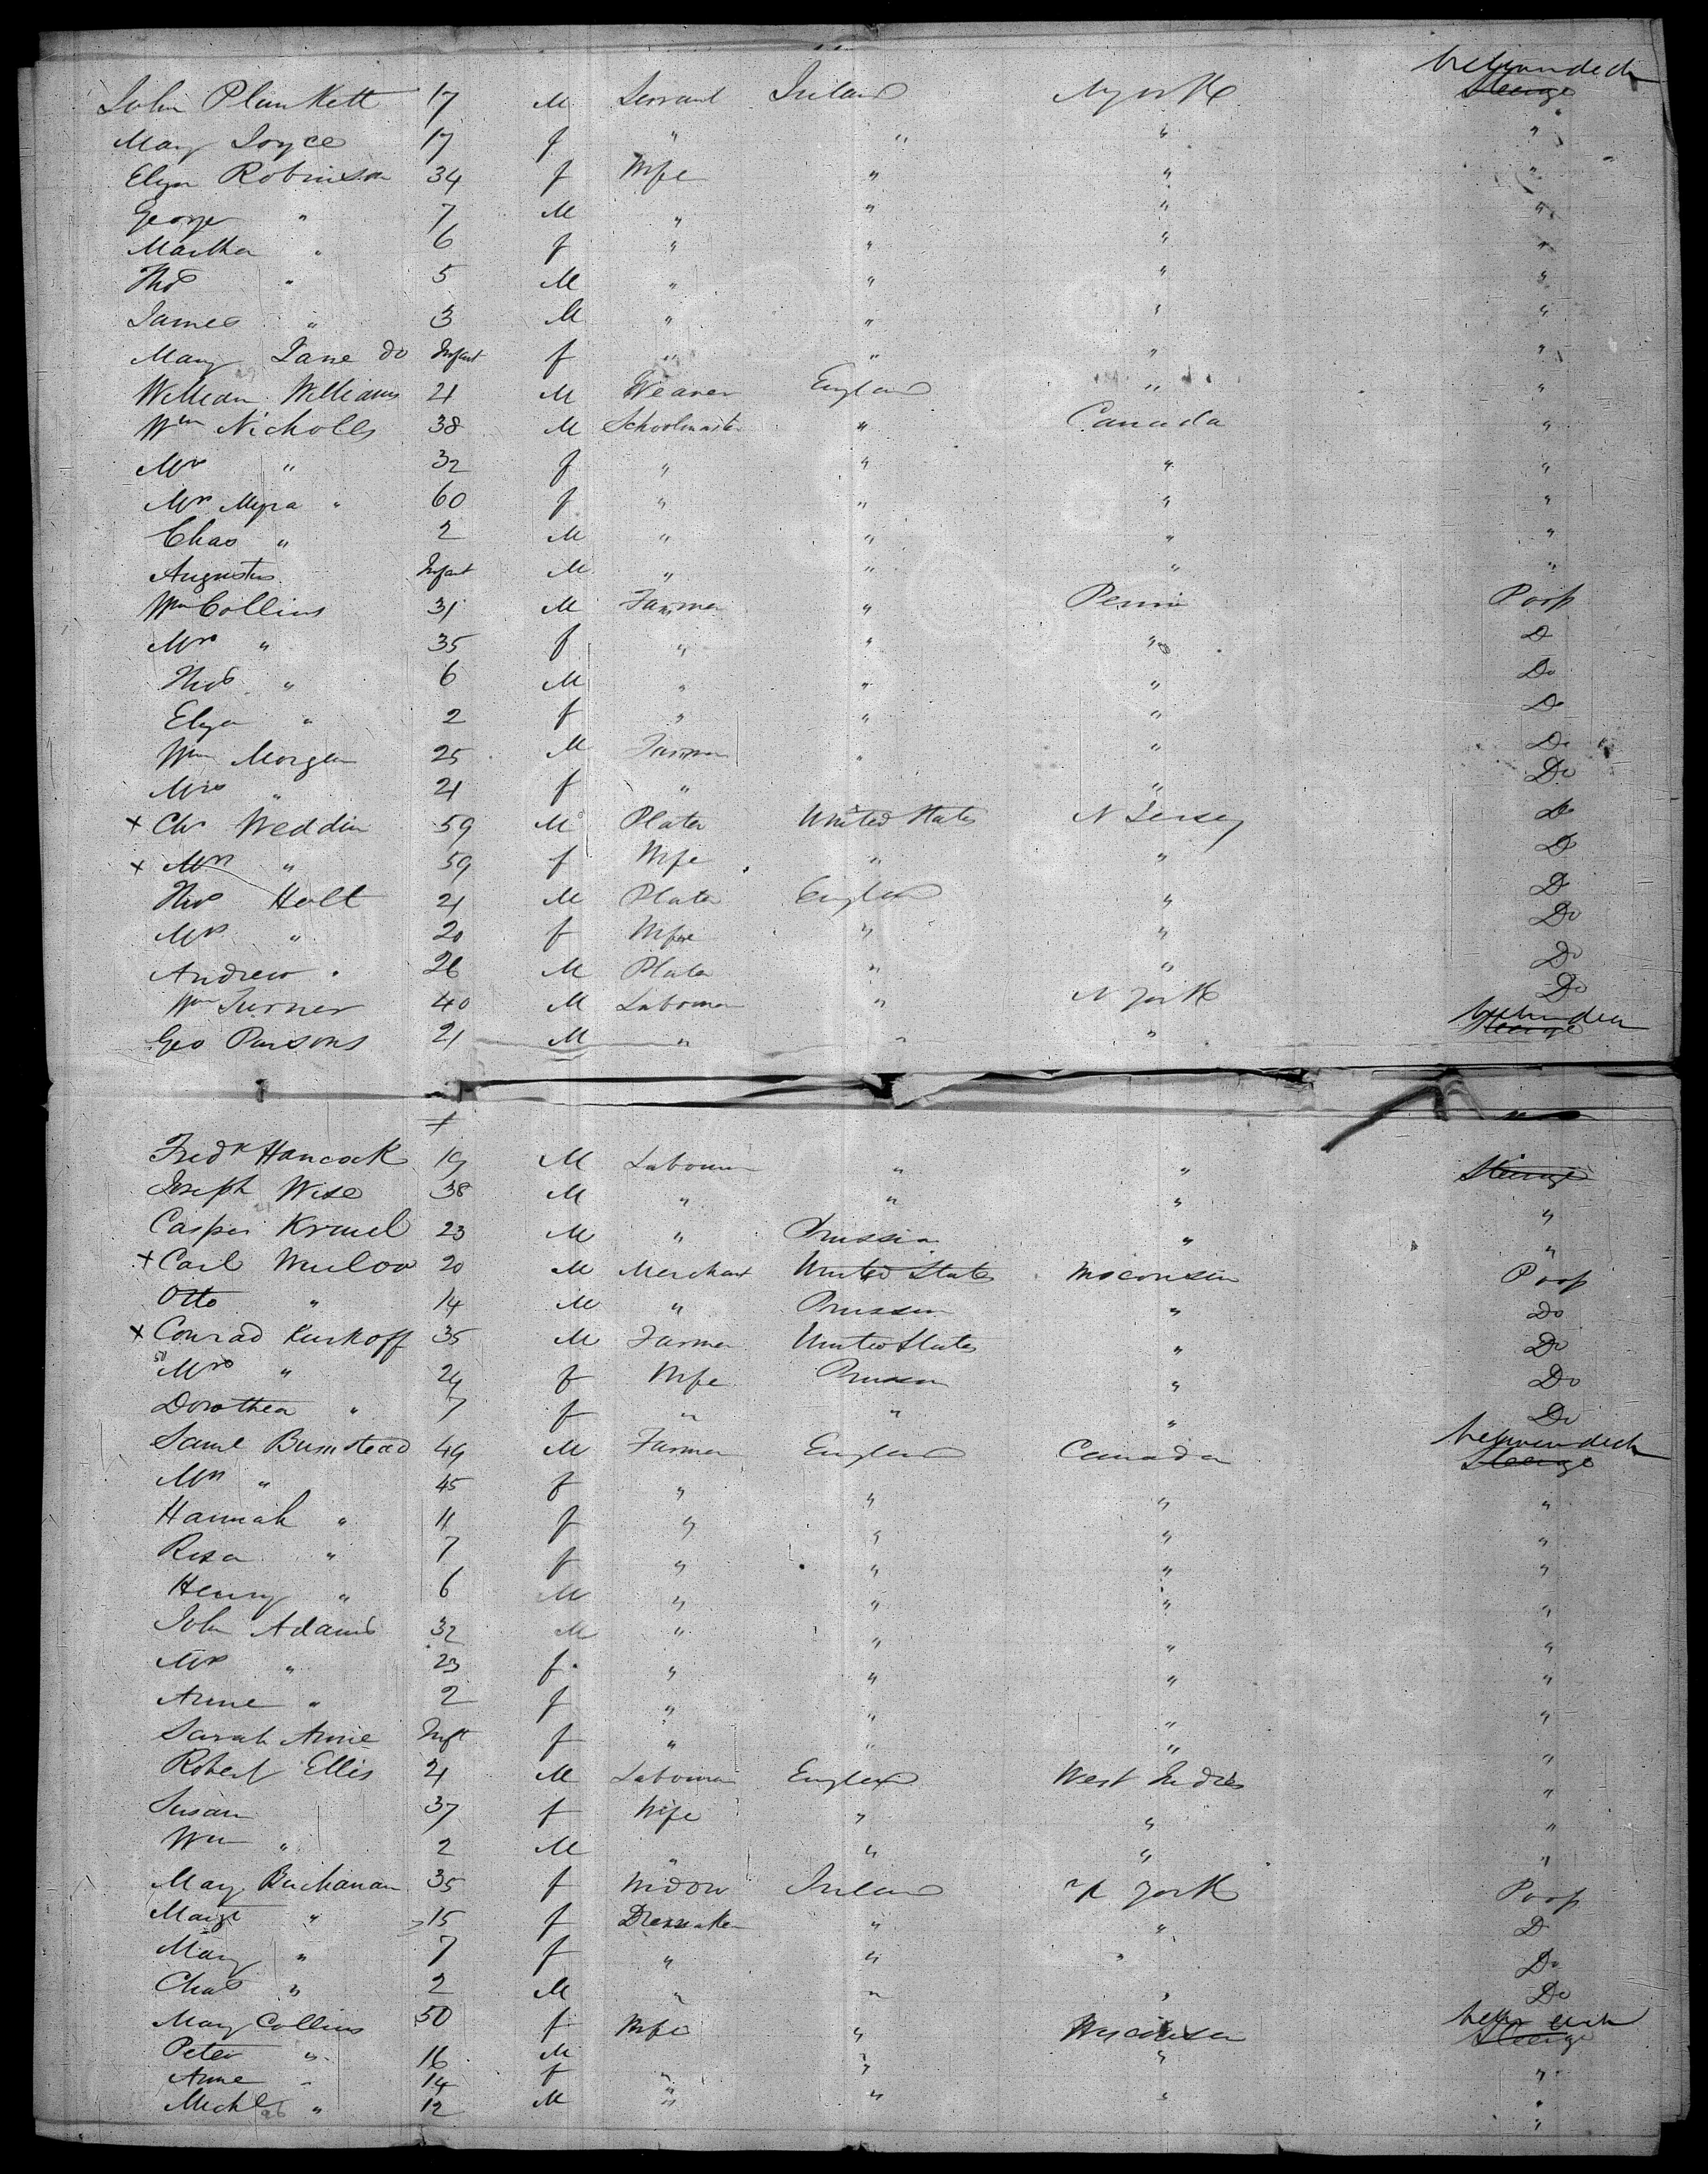 between deck
John Plunkett 17 M Servant Ireland N york Steerage
Mary Joyce 17 f " " " "
Eliza Robinson 34 f Wife " " "
George " 7 M " " " "
Martha " 6 f " " " "
Thos " 5 M " " " "
James " 3 M " " " "
Mary Jane do Infant f " " " "
William Williams 21 M Weaver England " "
Wm Nicholls 38 M Schoolmaster " Canada "
Mrs " 32 f " " " "
Mrs Myra " 60 f " " " "
Chas " 2 M " " " "
Augustus Infant M " " " "
Wm Collins 31 M Farmer " Penn Poop
Mrs " 35 f " " " Do
Thos " 6 M " " " Do
Eliza " 2 f " " " Do
Wm Morgan 25 M Farmer " " Do
Mrs " 21 f " " Do
x Chr Weddin 59 M Plater United States N Jersey Do
x Mrs " 59 f Wife " " Do
Thos Holt 21 M Plater England " Do
Mrs " 20 f Wife " " Do
Andrew " 26 M Plater " " Do
Wm Turner 40 M Labourer " N york Do
between deck
Geo Parsons 21 M " " " Steerage
x
Fredk Hancock 19 M Labourer " " Steerage
Joseph Wise 38 M " " " "
Casper 23 M " Prussia " "
x Carl 20 M Merchant United States Wisconsin Poop
Otto " 14 M " Prussia " Do
x Conrad Kirkhoff 35 M Farmer United States " Do
50 Mrs " 24 f Wife Prussia " Do
Dorothea " 7 f " " " Do
between deck
Saml Bumstead 49 M Farmer England Canada Steerage
Mrs " 45 f " " " "
Hannah " 11 f " " " "
Rosa " 7 f " " " "
Henry " 6 M " " " "
John Adams 32 M " " " "
Mrs " 23 f " " " "
Anne " 2 f " " " "
Sarah Anne Inft f " " " "
Robert Ellis 21 M Labourer England West Indies "
Susan 37 f Wife " " "
Wm " 2 M " " " "
Mary Buchanan 35 f Widow Ireland N york Poop
Margt " 15 f Dressmaker " " Do
Mary " 7 f " " " Do
Chas " 2 M " " " Do
between deck
Mary Collins 50 f Wife " Wisconsin Steerage
Peter " 16 M " " "
Anne " 14 f " " "
Michl " 12 M " " " "